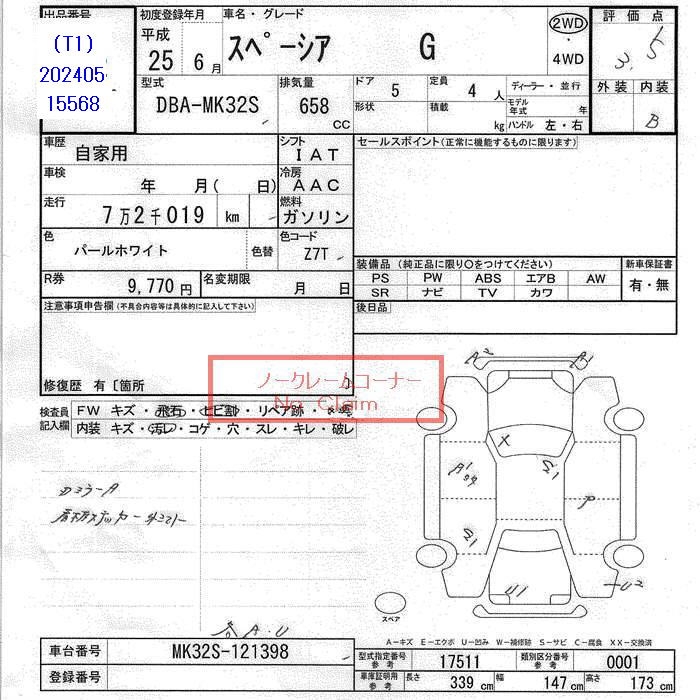 出品番号
(T1)
202405-
15568
初度登録年月
平成
25 6月
車名・グレード
スペーシア G
2WD
・
4WD
評価点
3.5
外装 内装
B
型式
DBA-MK32S
排気量
658
CC
ドア 5
定員 4人
ディーラー・並行
形状
積載 kg
モデル年式 年
ハンドル 左・右
車歴
自家用
シフト
IAT
セールスポイント(正常に機能するものに限ります)
車検
年 月( 日)
冷房
AAC
走行
7万2千019 km
燃料
ガソリン
色
パールホワイト
色替
色コード
Z7T
装備品(純正品に限り〇をつけてください)
新車保証書
PS PW ABS エアB AW
SR ナビ TV カワ
有・無
R券
9,770円
名変期限
月 日
後日品
注意事項申告欄(不具合内容等は具体的に記入して下さい)
修復歴 有〔箇所 〕
ノークレームコーナー
No Claim
検査員
記入欄
FW キズ・飛石・ヒビ割・リペア跡・交換
内装 キズ・汚レ・コゲ・穴・スレ・キレ・破レ
A2
A1
X
A1
S1
P
S1
U1
U2
スペア
A・U
A-キズ E-エクボ U-凹み W-補修跡 S-サビ C-腐食 XX-交換済
車台番号
MK32S-121398
型式指定番号
参考
17511
類別区分番号
参考
0001
登録番号
車庫証明用
参考
長さ 339 cm 幅 147 cm 高さ 173 cm